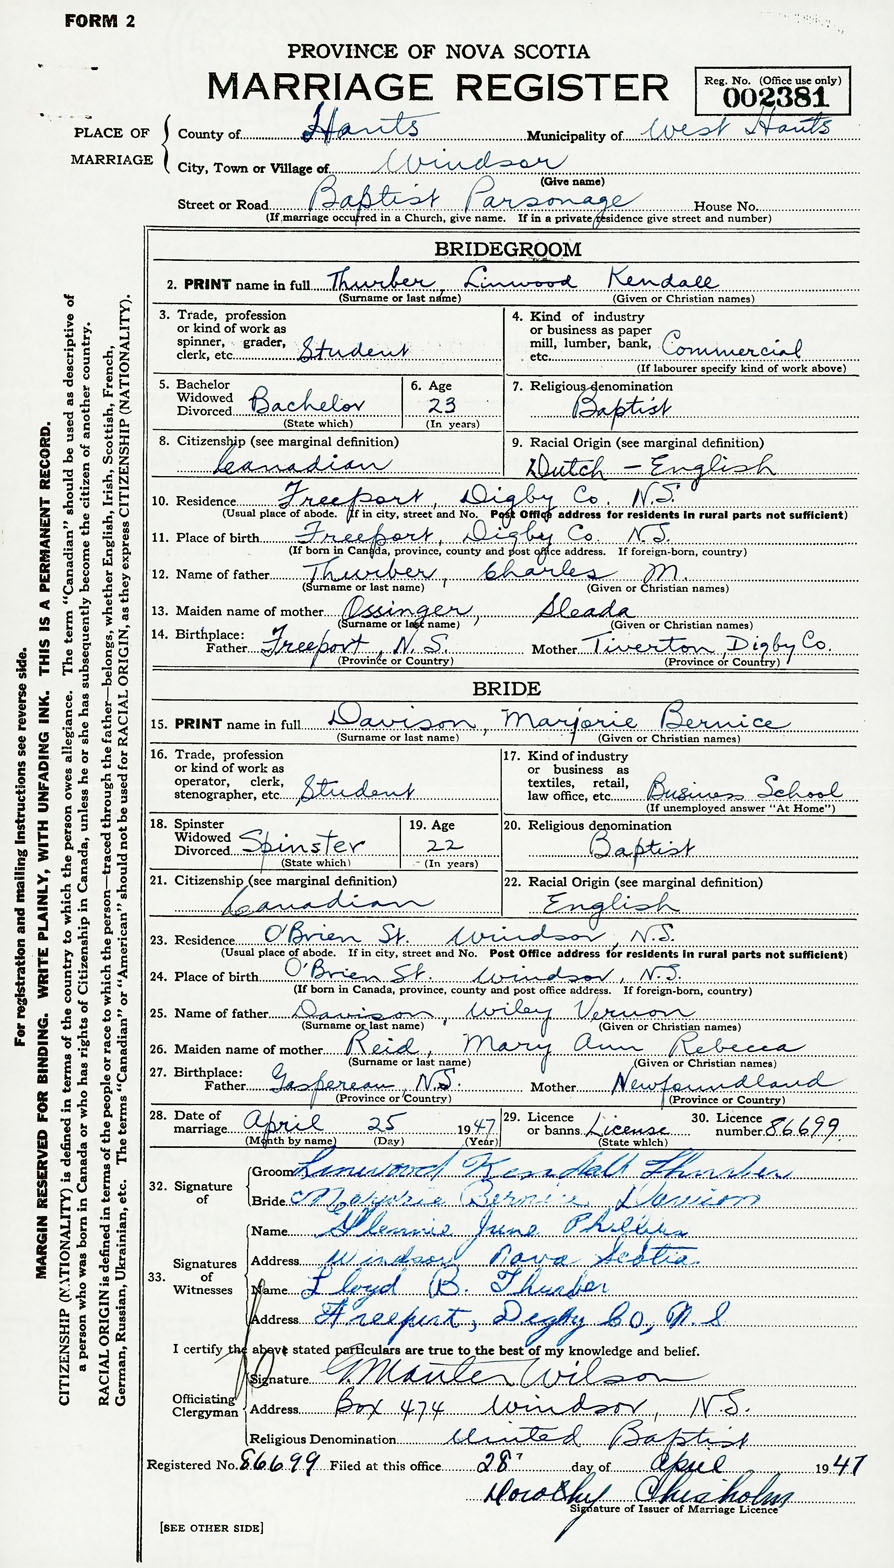 FORM 2
PROVINCE OF NOVA SCOTIA
MARRIAGE REGISTER
Reg. No. (Office use only)
002381
PLACE OF MARRIAGE
County of Hants Municipality of West Hants
City, Town or Village of Windsor
(Give name)
Street or Road Baptist Parsonage House No.
(If marriage occurred in a Church, give name. If in a private residence give street and number)
BRIDEGROOM
2. PRINT name in full Thurber, Linwood Kendall
(Surname or last name) (Given or Christian names)
3. Trade, profession or kind of work as spinner, grader, clerk, etc. Student
4. Kind of industry or business as paper mill, lumber, bank, etc. Commercial
(If labourer specify kind of work above)
5. Bachelor Widowed Divorced Bachelor
(State which)
6. Age 23
(In years)
7. Religious denomination Baptist
8. Citizenship (see marginal definition) Canadian
9. Racial Origin (see marginal definition) Dutch - English
10. Residence Freeport, Digby Co. N.S.
(Usual place of abode. If in city, street and No. Post Office address for residents in rural parts not sufficient)
11. Place of birth Freeport, Digby Co. N.S.
(If born in Canada, province, county and post office address. If foreign-born, country)
12. Name of father Thurber, Charles M.
(Surname or last name) (Given or Christian names)
13. Maiden name of mother Ossinger, Sleada
(Surname or last name) (Given or Christian names)
14. Birthplace: Father Freeport, N.S. Mother Tiverton, Digby Co.
(Province or Country) (Province or Country)
BRIDE
15. PRINT name in full Davison, Marjorie Bernice
(Surname or last name) (Given or Christian names)
16. Trade, profession or kind of work as operator, clerk, stenographer, etc. Student
17. Kind of industry or business as textiles, retail, law office, etc. Business School
(If unemployed answer "At Home")
18. Spinster Widowed Divorced Spinster
(State which)
19. Age 22
(In years)
20. Religious denomination Baptist
21. Citizenship (see marginal definition) Canadian
22. Racial Origin (see marginal definition) English
23. Residence O'Brien St. Windsor, N.S.
(Usual place of abode. If in city, street and No. Post Office address for residents in rural parts not sufficient)
24. Place of birth O'Brien St. Windsor, N.S.
(If born in Canada, province, county and post office address. If foreign-born, country)
25. Name of father Davison, Wiley Vernon
(Surname or last name) (Given or Christian names)
26. Maiden name of mother Reid, Mary Ann Rebecca
(Surname or last name) (Given or Christian names)
27. Birthplace: Father Gaspereau, N.S. Mother Newfoundland
(Province or Country) (Province or Country)
28. Date of marriage April 25 1947
(Month by name) (Day) (Year)
29. Licence or banns License
(State which)
30. Licence number 86699
32. Signature of
Groom Linwood Kendall Thurber
Bride Marjorie Bernice Davison
33. Signatures of Witnesses
Name Glennie June
Address Windsor Nova Scotia
Name Lloyd B. Thurber
Address Freeport, Digby Co, N.S
I certify the above stated particulars are true to the best of my knowledge and belief.
Officiating Clergyman
Signature G Manter Wilson
Address Box 474 Windsor, N.S.
Religious Denomination United Baptist
Registered No. 86699 Filed at this office 28 day of April 1947
Dorothy Chisholm
Signature of Issuer of Marriage Licence
[SEE OTHER SIDE]
For registration and mailing instructions see reverse side.
MARGIN RESERVED FOR BINDING. WRITE PLAINLY, WITH UNFADING INK. THIS IS A PERMANENT RECORD.
CITIZENSHIP (NATIONALITY) is defined in terms of the country to which the person owes allegiance. The term "Canadian" should be used as descriptive of
a person who was born in Canada or who has rights of Citizenship in Canada, unless he or she has subsequently become the citizen of another country.
RACIAL ORIGIN is defined in terms of the people or race to which the person—traced through the father—belongs, whether English, Irish, Scottish, French,
German, Russian, Ukrainian, etc. The terms "Canadian" or "American" should not be used for RACIAL ORIGIN, as they express CITIZENSHIP (NATIONALITY).